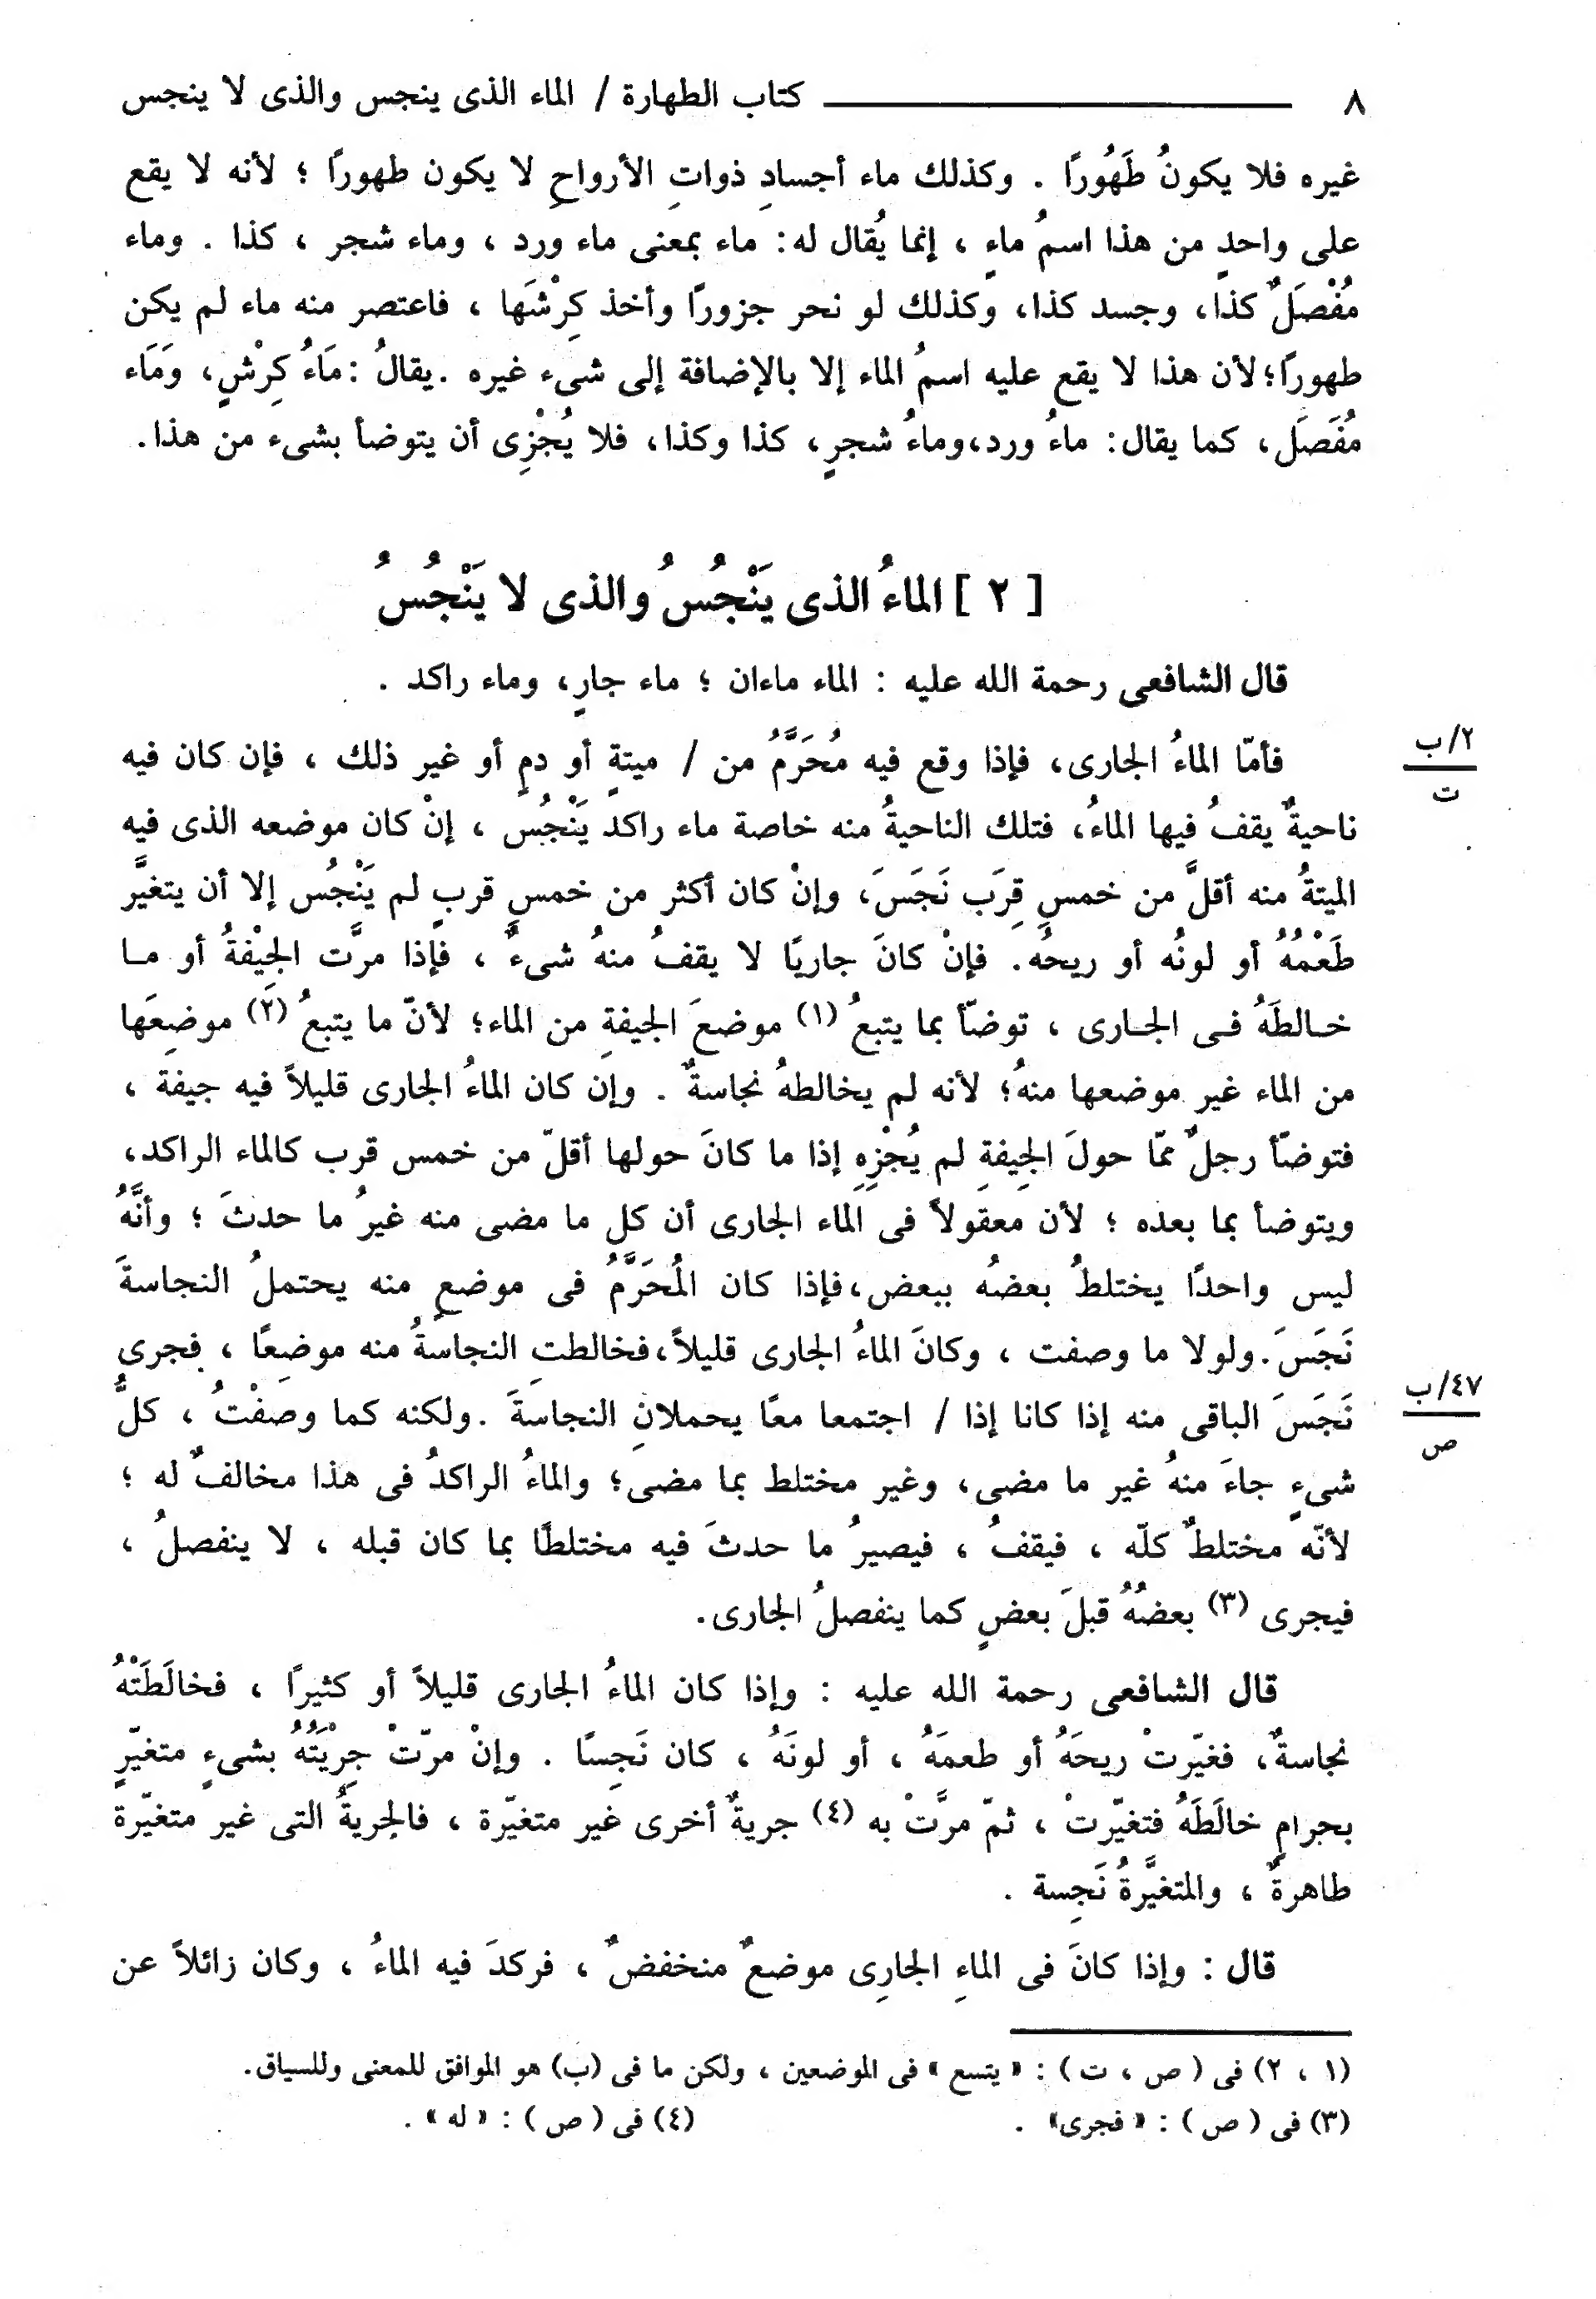 ٨ كتاب الطهارة / الماء الذى ينجس والذى لا ينجس
غيره فلا يكونُ طَهُورًا . وكذلك ماء أجسادِ ذواتِ الأرواحِ لا يكون طهورًا ؛ لأنه لا يقع
على واحدٍ من هذا اسمُ ماءٍ ، إنما يُقال له: ماء بمعنى ماء ورد ، وماء شجر ، كذا . وماء
مُفْصَلٌ كذا، وجسد كذا، وكذلك لو نحر جزورًا وأخذ كِرْشَها ، فاعتصر منه ماء لم يكن
طهورًا؛لأن هذا لا يقع عليه اسمُ الماء إلا بالإضافة إلى شىء غيره .يقالُ :مَاءُ كِرْشٍ، وَمَاء
مُفَصَل، كما يقال: ماءُ ورد،وماءُ شجرٍ، كذا وكذا، فلا يُجْزِى أن يتوضأ بشىء من هذا.
[ ٢ ] الماءُ الذى يَنْجُسُ والذى لا يَنْجُسُ
قال الشافعى رحمة الله عليه : الماء ماءان ؛ ماء جارٍ، وماء راكد .
فأمّا الماءُ الجارى، فإذا وقع فيه مُحَرَّمٌ من / ميتةٍ أو دمٍ أو غير ذلك ، فإن كان فيه
٢/ب
ت
ناحيةٌ يقفُ فيها الماءُ، فتلك الناحيةُ منه خاصة ماء راكد يَنْجُس ، إنْ كان موضعه الذى فيه
الميتةُ منه أقلَّ من خمسِ قِرَب نَجَسَ، وإنْ كان أكثر من خمسِ قربٍ لم يَنْجُس إلا أن يتغيَّر
طَعْمُهُ أو لونُه أو ريحُه. فإنْ كانَ جاريًا لا يقفُ منهُ شىءٌ ، فإذا مرَّت الجِيْفةُ أو ما
خالطَهُ فى الجارى ، توضّأ بما يتبعُ (١) موضعَ الجيفةِ من الماء؛ لأنّ ما يتبعُ (٢) موضِعَها
من الماء غير موضعها منهُ؛ لأنه لم يخالطهُ نجاسةٌ . وإن كان الماءُ الجارى قليلاً فيه جيفة ،
فتوضّأ رجلٌ ممّا حولَ الجِيفةِ لم يُجْزِهِ إذا ما كانَ حولها أقلّ من خمس قرب كالماء الراكد،
ويتوضأ بما بعده ؛ لأن معقولاً فى الماء الجارى أن كل ما مضى منه غيرُ ما حدثَ ؛ وأنَّهُ
ليس واحدًا يختلطُ بعضُه ببعض،فإذا كان المُحَرَّمُ فى موضعٍ منه يحتملُ النجاسةَ
نَجَسَ.ولولا ما وصفت ، وكانَ الماءُ الجارى قليلاً،فخالطتِ النجاسةُ منه موضِعًا ، فجرى
نَجَسَ الباقى منه إذا كانا إذا / اجتمعا معًا يحملانِ النجاسَةَ .ولكنه كما وصفْتُ ، كلُّ
٤٧/ب
ص
شىءٍ جاءَ منهُ غير ما مضى، وغير مختلط بما مضى؛ والماءُ الراكدُ فى هذا مخالفٌ له ؛
لأنّه مختلطٌ كلّه ، فيقفُ ، فيصيرُ ما حدثَ فيه مختلطًا بما كان قبله ، لا ينفصلُ ،
فيجرى (٣) بعضُهُ قبلَ بعضٍ كما ينفصلُ الجارى.
قال الشافعى رحمة الله عليه : وإذا كان الماءُ الجارى قليلاً أو كثيرًا ، فخالَطَتْهُ
نجاسةٌ، فغيّرتْ ريحَهُ أو طعمَهُ ، أو لونَهُ ، كان نَجِسًا . وإنْ مرّتْ جِرْيَتُهُ بشىءٍ متغيّرٍ
بحرامٍ خالَطَهُ فتغيّرتْ ، ثمّ مرَّتْ به (٤) جريةٌ أخرى غير متغيّرة ، فالجريةُ التى غير متغيّرة
طاهرةٌ ، والمتغيَّرةُ نَجِسة .
قال : وإذا كانَ فى الماءِ الجارِى موضعٌ منخفضٌ ، فركدَ فيه الماءُ ، وكان زائلاً عن
(١ ، ٢) فى ( ص ، ت ) : « يتسع » فى الموضعين ، ولكن ما فى (ب) هو الموافق للمعنى وللسياق.
(٣) فى ( ص ) : « فجرى» . (٤) فى ( ص ) : « له » .